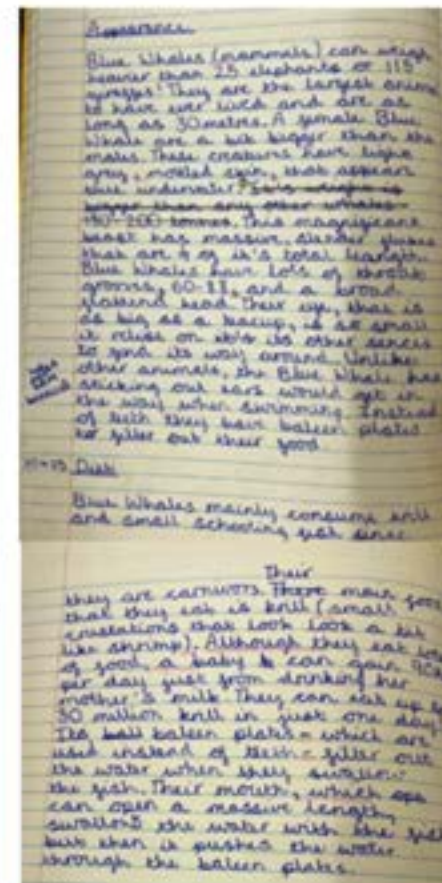 Appearance
Blue Whales (mammals) can weigh
heavier than 25 elephants or 115
They are the largest animal
to have ever lived and are as
long as 30 metres. A female Blue
Whale are a bit bigger than the
males. These creatures have light
grey, mottled skin, that appears
blue underwater.
bigger than any other whales
150-200 tonnes. This magnificent
beast has massive, slender flukes
that are of it's total length.
Blue Whales have lots of throat
grooves, 60-88, and a broad
head. Their eye, that is
as big as a teacup, is so small
it relies on its other
to find its way around. Unlike
other animals, the Blue Whale has
sticking out ears would get in
the way when swimming. Instead
of teeth they have baleen plates
to filter out their food.
Diet
Blue Whales mainly consume krill
and small schooling fish since
Their
they are carnivors. There main food
that they eat is krill (small
crustations that look look a bit
like shrimp). Although they eat lots
of food, a baby can gain
per day just from drinking her
mother's milk. They can eat up to
30 million krill in just one day.
Its ball baleen plates - which are
used instead of teeth - filter out
the water when they swallow
the fish. Their mouth, which ope
can open a massive length,
swallows the water with the fish
but then it pushes the water
through the baleen plates.